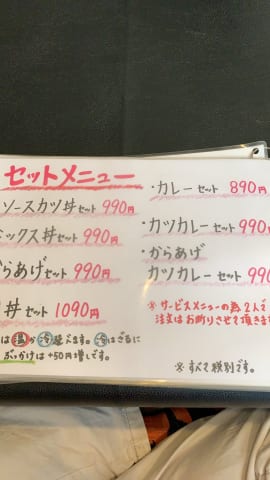 セットメニュー
ソースカツ丼セット 990円
ミックス丼セット 990円
らあげセット 990円
丼セット 1090円
は温か冷選べます。冷はざるに
ぶっかけは+50円増しです。
・カレーセット 890円
・カツカレーセット 990円
・からあげ
カツカレーセット 990
※サービスメニューの為2人で
注文はお断りさせて頂きます
※すべて税別です。